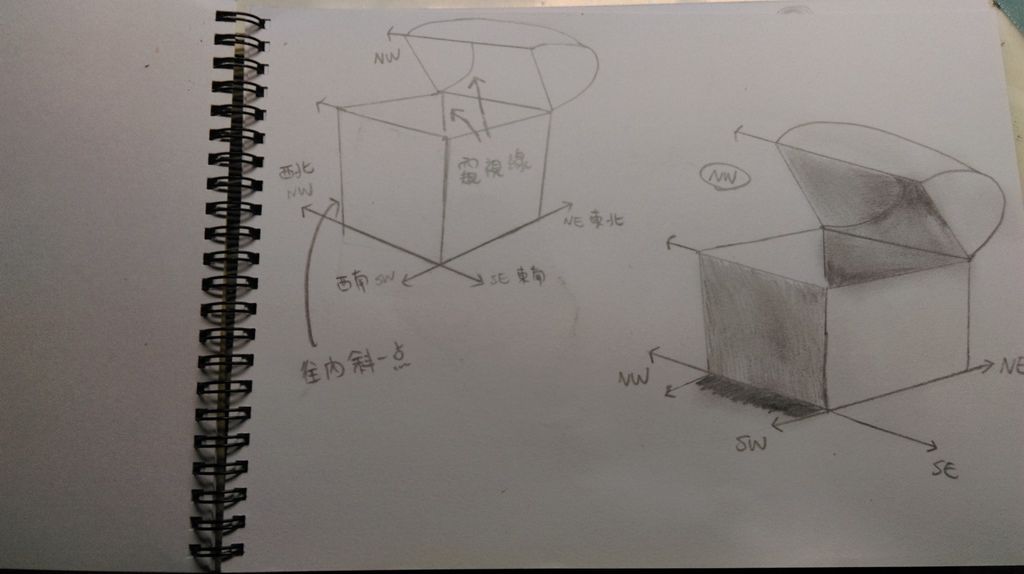 NW
視線
西北
NW
NE 東北
西南 SW
SE 東南
往內斜一点
NW
NW
NE
SW
SE